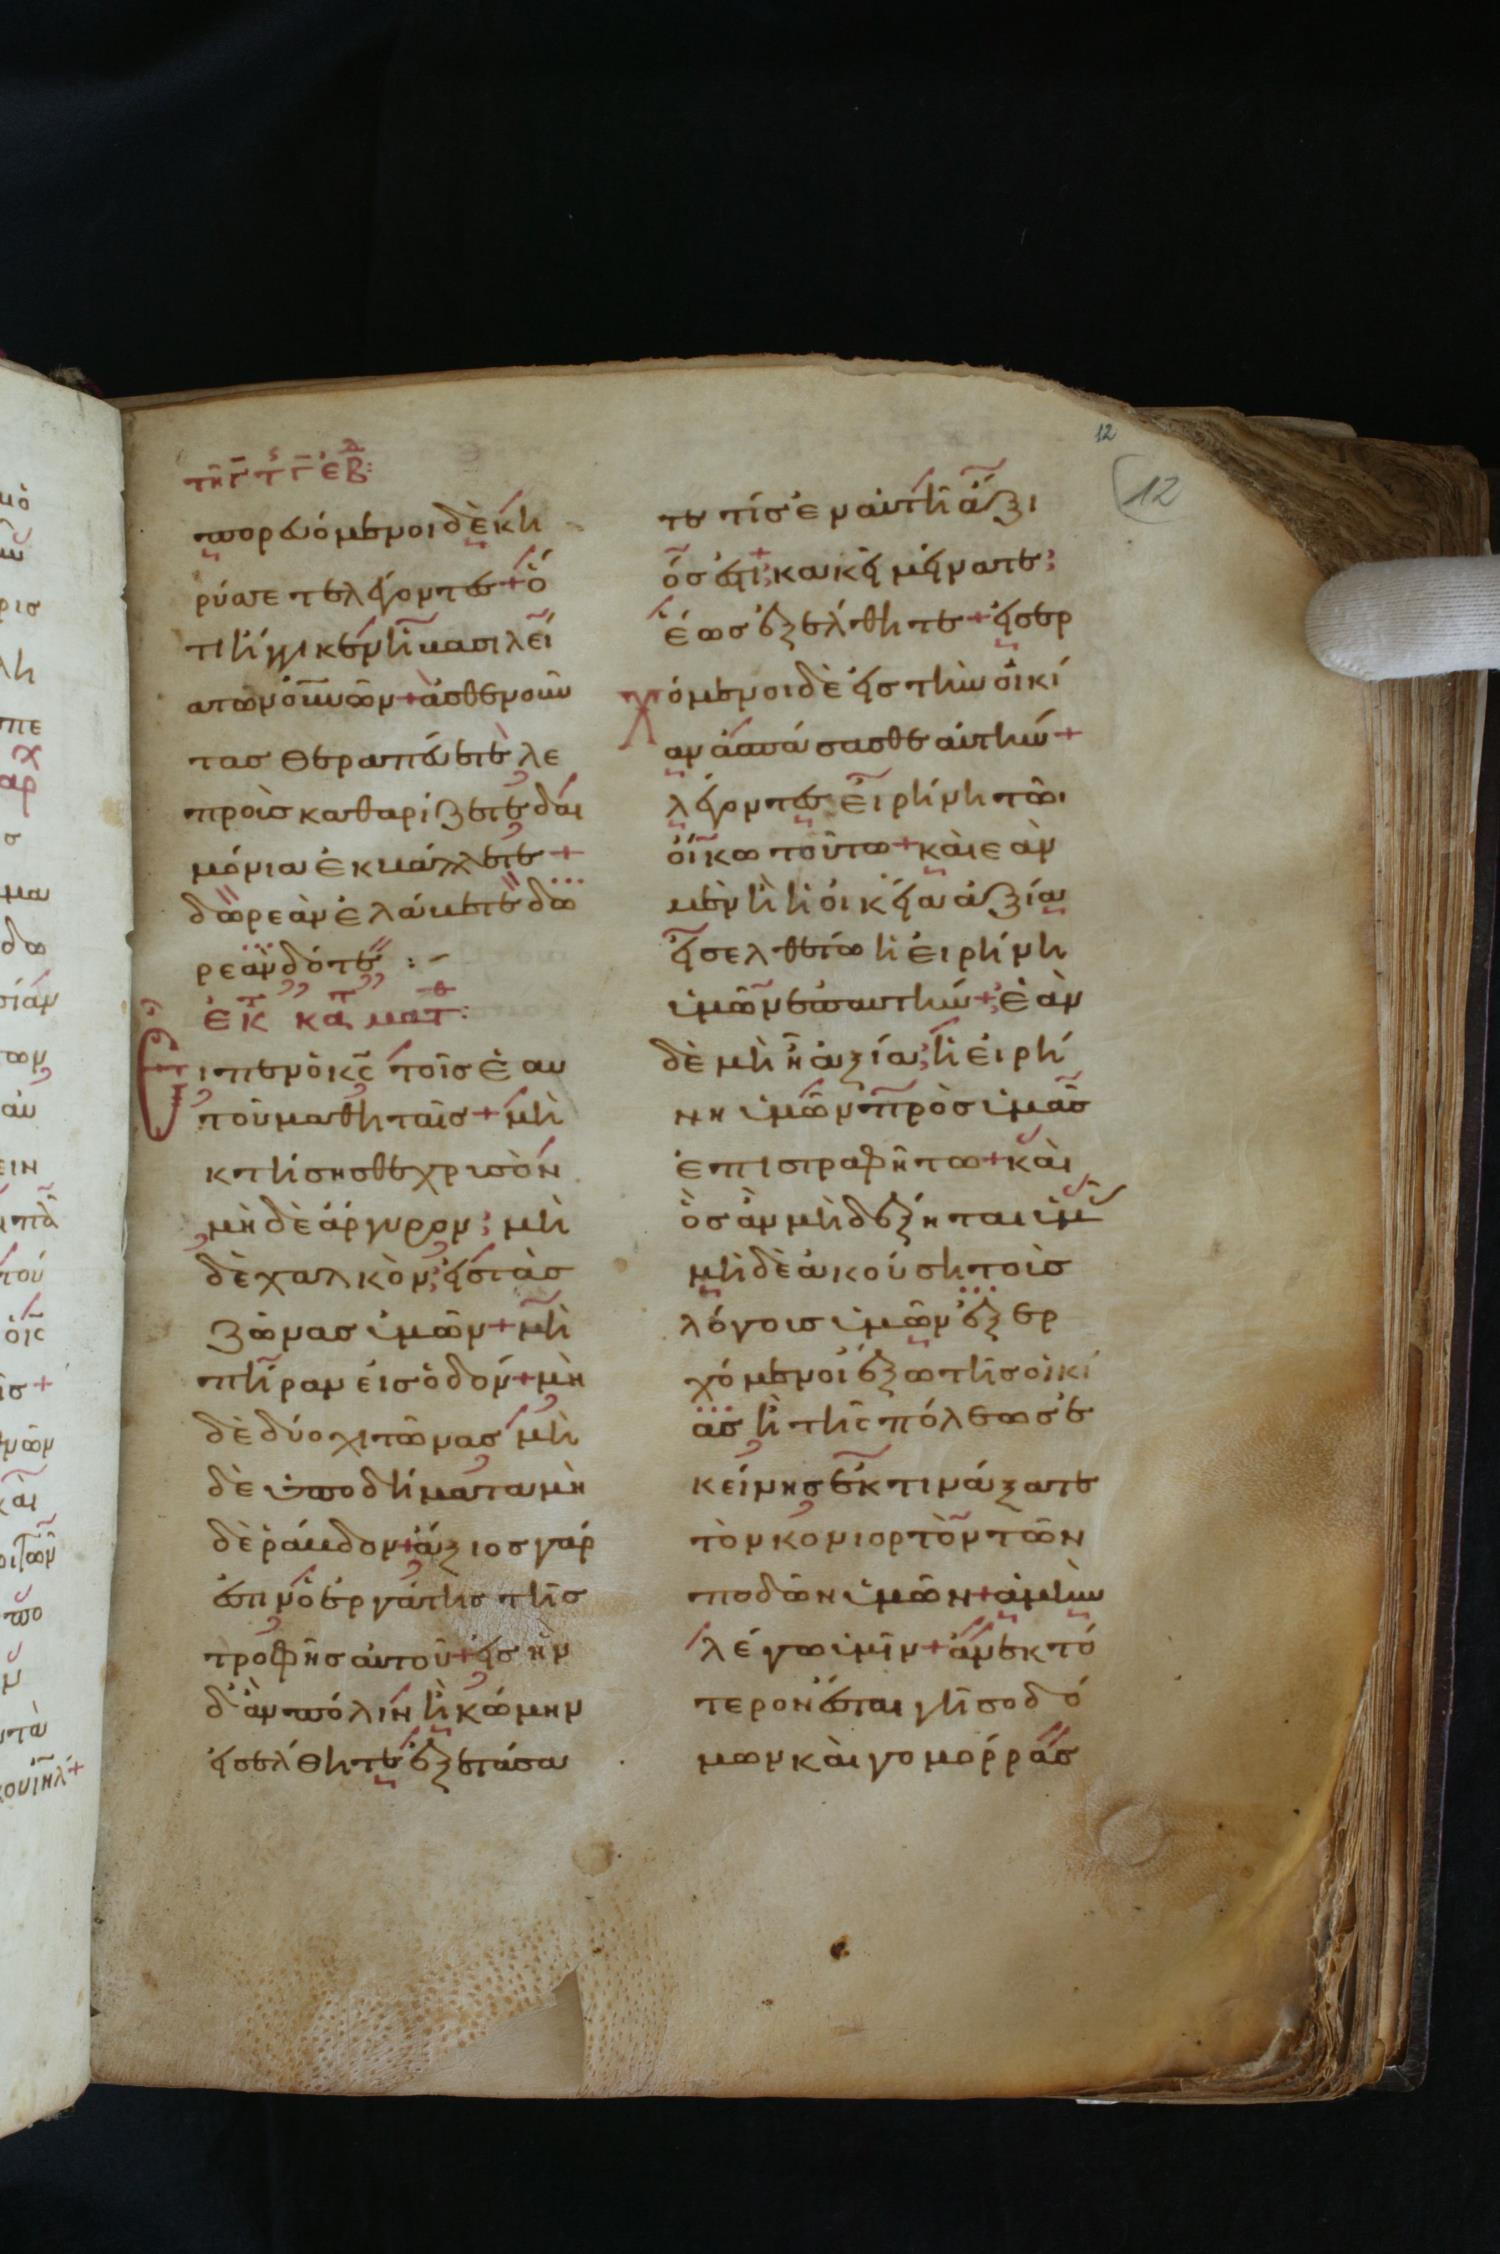 τῆ γ τς γ ἑβδ:
πορευόμενοι δὲ κη
ρύσετε λέγοντες + ὅ
τι ἤγγικεν ἡ βασιλεί
α τῶν οὐνῶν + ἀσθενοῦν
τας θεραπεύετε λε
προὺς καθαρίζετε δαι
μόνια ἐκβάλλετε +
δωρεὰν ἐλάβετε δω
ρεὰν δότε : -
ἐκ τ κατ ματθ:
Εἶπεν ὁ κς τοῖς ἑαυ
τοῦ μαθηταῖς + μὴ
κτήσησθε χρυσὸν
μὴ δὲ ἄργυρον ; μὴ
δὲ χαλκὸν ; εἰς τὰς
ζώνας ὑμῶν + μὴ
πήραν εἰς ὁδόν + μὴ
δὲ δύο χιτῶνας μὴ
δὲ ὑποδήματα μὴ
δὲ ῥάβδον + ἄξιος γάρ
ἐστιν ὁ ἐργάτης τῆς
τροφῆς αὐτοῦ + εἰς ἣν
δ' ἂν πόλιν ἢ κώμην
εἰσέλθητε ἐξετάσα
τε τίς ἐν αὐτῆ ἄξι
ός ἐστι ; κακεῖ μείνατε ;
ἕως ἐξέλθητε + εἰσερ
χόμενοι δὲ εἰς τὴν οἰκί
αν ἀσπάσασθε αὐτήν +
λέγοντες εἰρήνη τῶι
οἴκω τούτω + καὶ ἐὰν
μὲν ἢ ἡ οἰκεία ἀξία
εἰσελθέτω ἡ εἰρήνη
ὑμῶν ἐπ' αὐτήν + ἐὰν
δὲ μὴ ἦ ἀξία ; ἡ εἰρή
νη ὑμῶν πρὸς ὑμᾶς
ἐπιστραφήτω + καὶ
ὃς ἂν μὴ δέξηται ὑμ
μὴ δὲ ἀκούση τοὺς
λόγους ὑμῶν ἐξερ
χόμενοι ἔξω τῆς οἰκί
ας ἢ τῆς πόλεως ἐ
κείνης ἐκτινάξατε
τὸν κονιορτὸν τῶν
ποδῶν ὑμῶν + ἀμὴν
λέγω ὑμῖν + ἀνεκτό
τερον ἔσται γῆ σοδό
μων καὶ γομόρρας
12
12